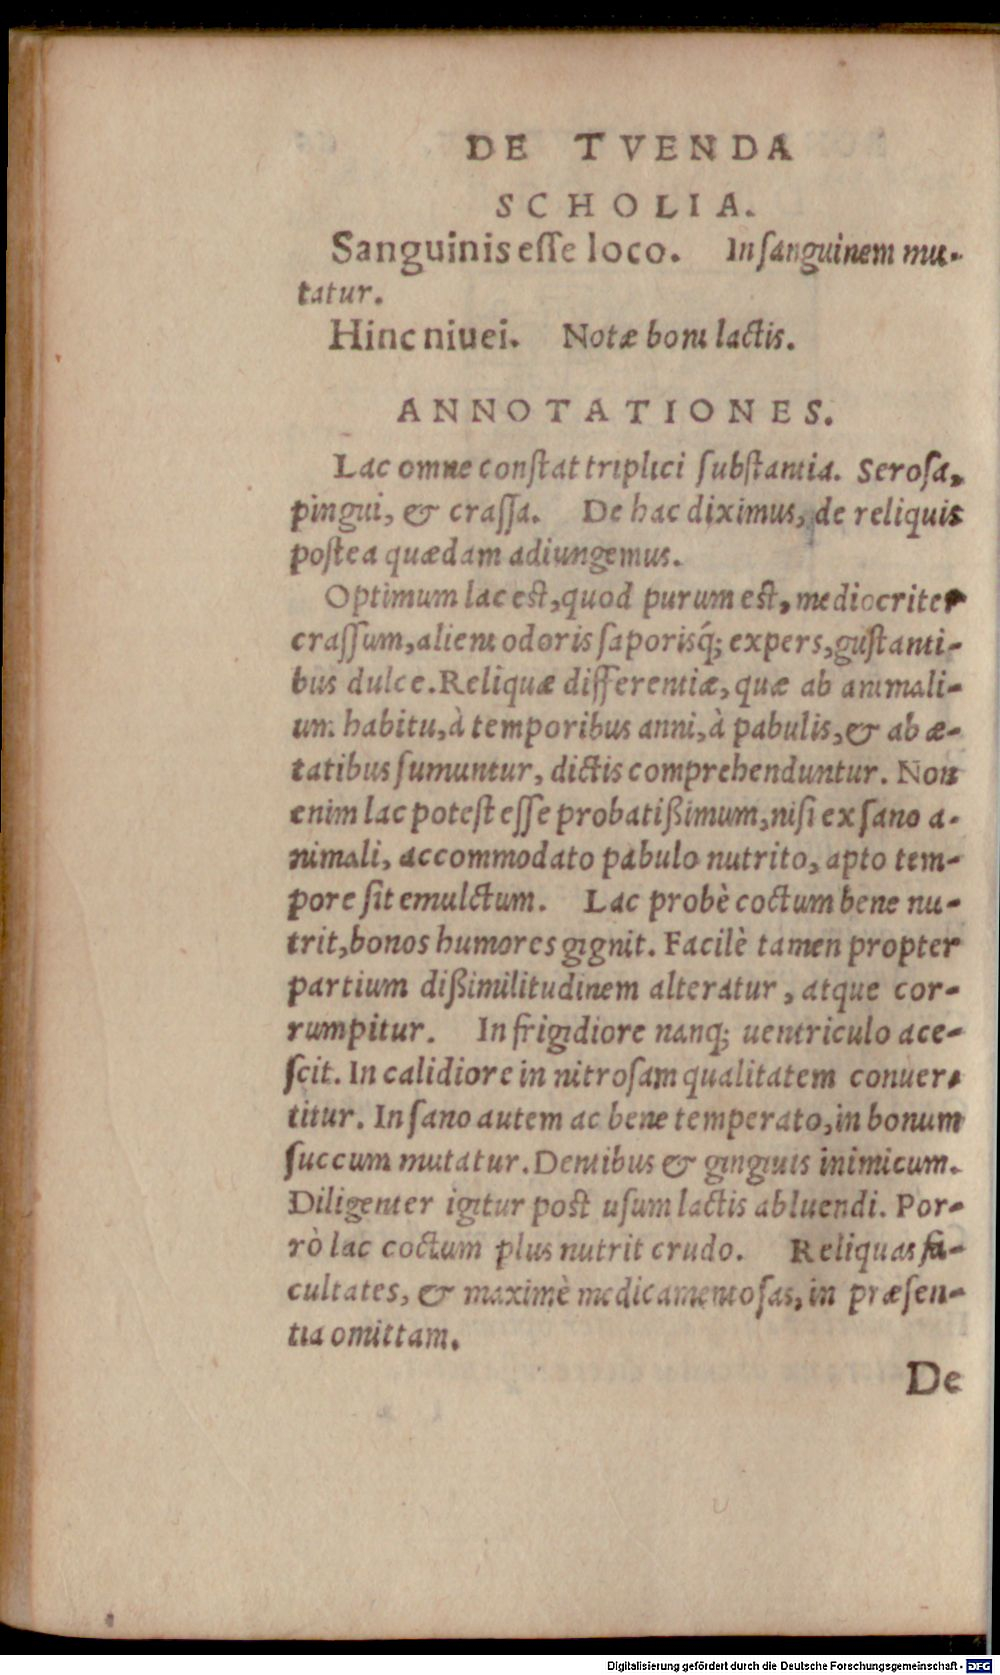 DE TVENDA
SCHOLIA.
Sanguinis eſſe loco. In ſanguinem mu-
tatur.
Hinc niuei. Notæ boni lactis.
ANNOTATIONES.
Lac omne conſtat triplici ſubſtantia. Seroſa,
pingui, & craſſa. De hac diximus, de reliquis
poſtea quædam adiungemus.
Optimum lac est, quod purum est, mediocriter
craſſum, alieni odoris ſaporisq́; expers, guſtanti-
bus dulce. Reliquæ differentiæ, quæ ab animali-
um habitu, à temporibus anni, à pabulis, & ab æ-
tatibus ſumuntur, dictis comprehenduntur. Non
enim lac poteſt eſſe probatißimum, niſi ex ſano a-
nimali, accommodato pabulo nutrito, apto tem-
pore ſit emulctum. Lac probè coctum bene nu-
trit, bonos humores gignit. Facilè tamen propter
partium dißimilitudinem alteratur, atque cor-
rumpitur. In frigidiore nanq; uentriculo ace-
ſcit. In calidiore in nitroſam qualitatem conuer-
titur. In ſano autem ac bene temperato, in bonum
ſuccum mutatur. Dentibus & gingiuis inimicum.
Diligenter igitur post uſum lactis abluendi. Por-
rò lac coctum plus nutrit crudo. Reliquas fa-
cultates, & maximè medicamentoſas, in præſen-
tia omittam.
De
Digitalisierung gefördert durch die Deutsche Forschungsgemeinschaft - DFG